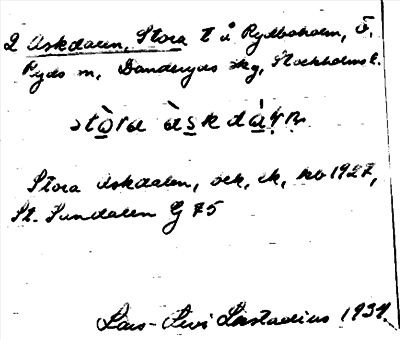 2 Askdalen, Stora t å Rydboholm, Ö.
Ryds sn, Danderyds skg, Stockholms l.
stòra àskdàḷṇ
Stora Askdalen, oek, ek, kb 1927,
St. Sundalen G 75
Lars-Levi Læstadius 1934.